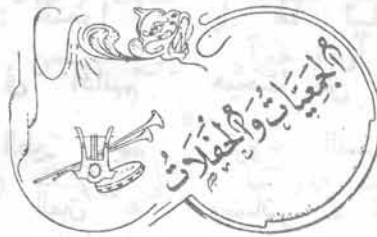 الجَمعِيَاتُ وَالْحَفَلَاتُ